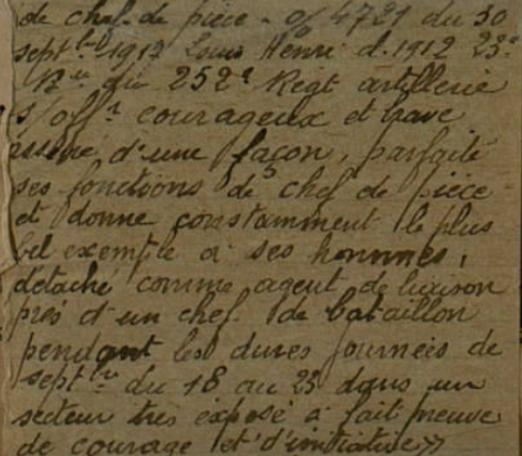 de chef de pièce - o/ 4721 du 30
septbre 1917 Louis Henri cl. 1912 23e
Bie du 252e Regt artillerie
s/offr courageux et brave
assure d'une façon, parfaite
ses fonctions de chef de pièce
et donne constamment le plus
bel exemple à ses hommes,
détaché comme agent de liaison
près d'un chef de bataillon
pendant les dures journées de
septbre du 18 au 23 dans un
secteur très exposé a fait preuve
de courage et d'initiative»